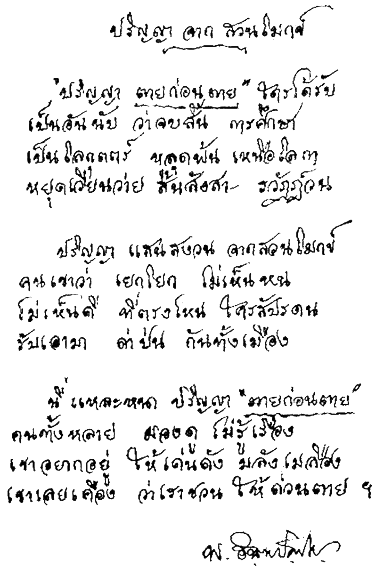 ปริญญา จาก สวนโมกข์
"ปริญญา ตายก่อนตาย" ใครได้รับ
เป็นอันนับ ว่าจบสิ้น การศึกษา
เป็นโลกุตตร์ หลุดพ้น เหนือโลกา
หยุดเวียนว่าย สิ้นสังสา- รวัฏฏ์วน
ปริญญา แสนสงวน จากสวนโมกข์
คนเขาว่า เยกโยก ไม่เห็นหน
ไม่เห็นดี ที่ตรงไหน ใครสัปรดน
รับเอามา ด่าป่น กันทั้งเมือง
นี่แหละหนา ปริญญา "ตายก่อนตาย"
คนทั้งหลาย มองดู ไม่รู้เรื่อง
เขาอยากอยู่ ให้เด่นดัง มลังเมลือง
เขาเลยเคือง ว่าเราชวน ให้ด่วนตาย ฯ
พ. อินทปัญโญ